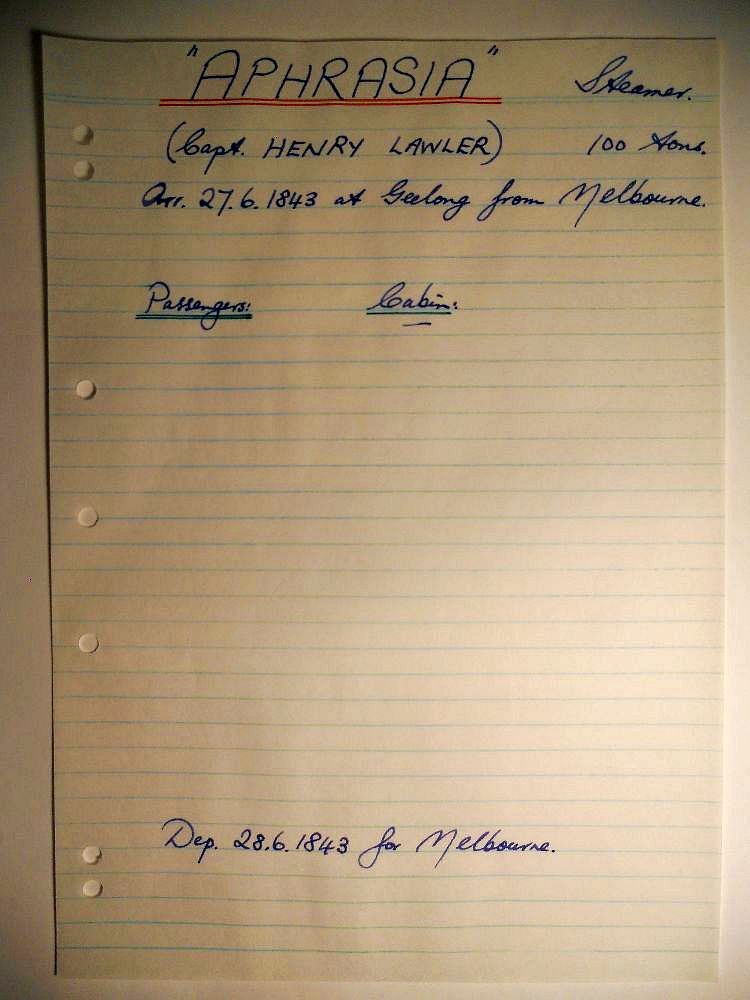 "APHRASIA" Steamer.
(Capt. HENRY LAWLER) 100 tons.
Arr. 27.6.1843 at Geelong from Melbourne.
Passengers: Cabin:
Dep. 28.6.1843 for Melbourne.